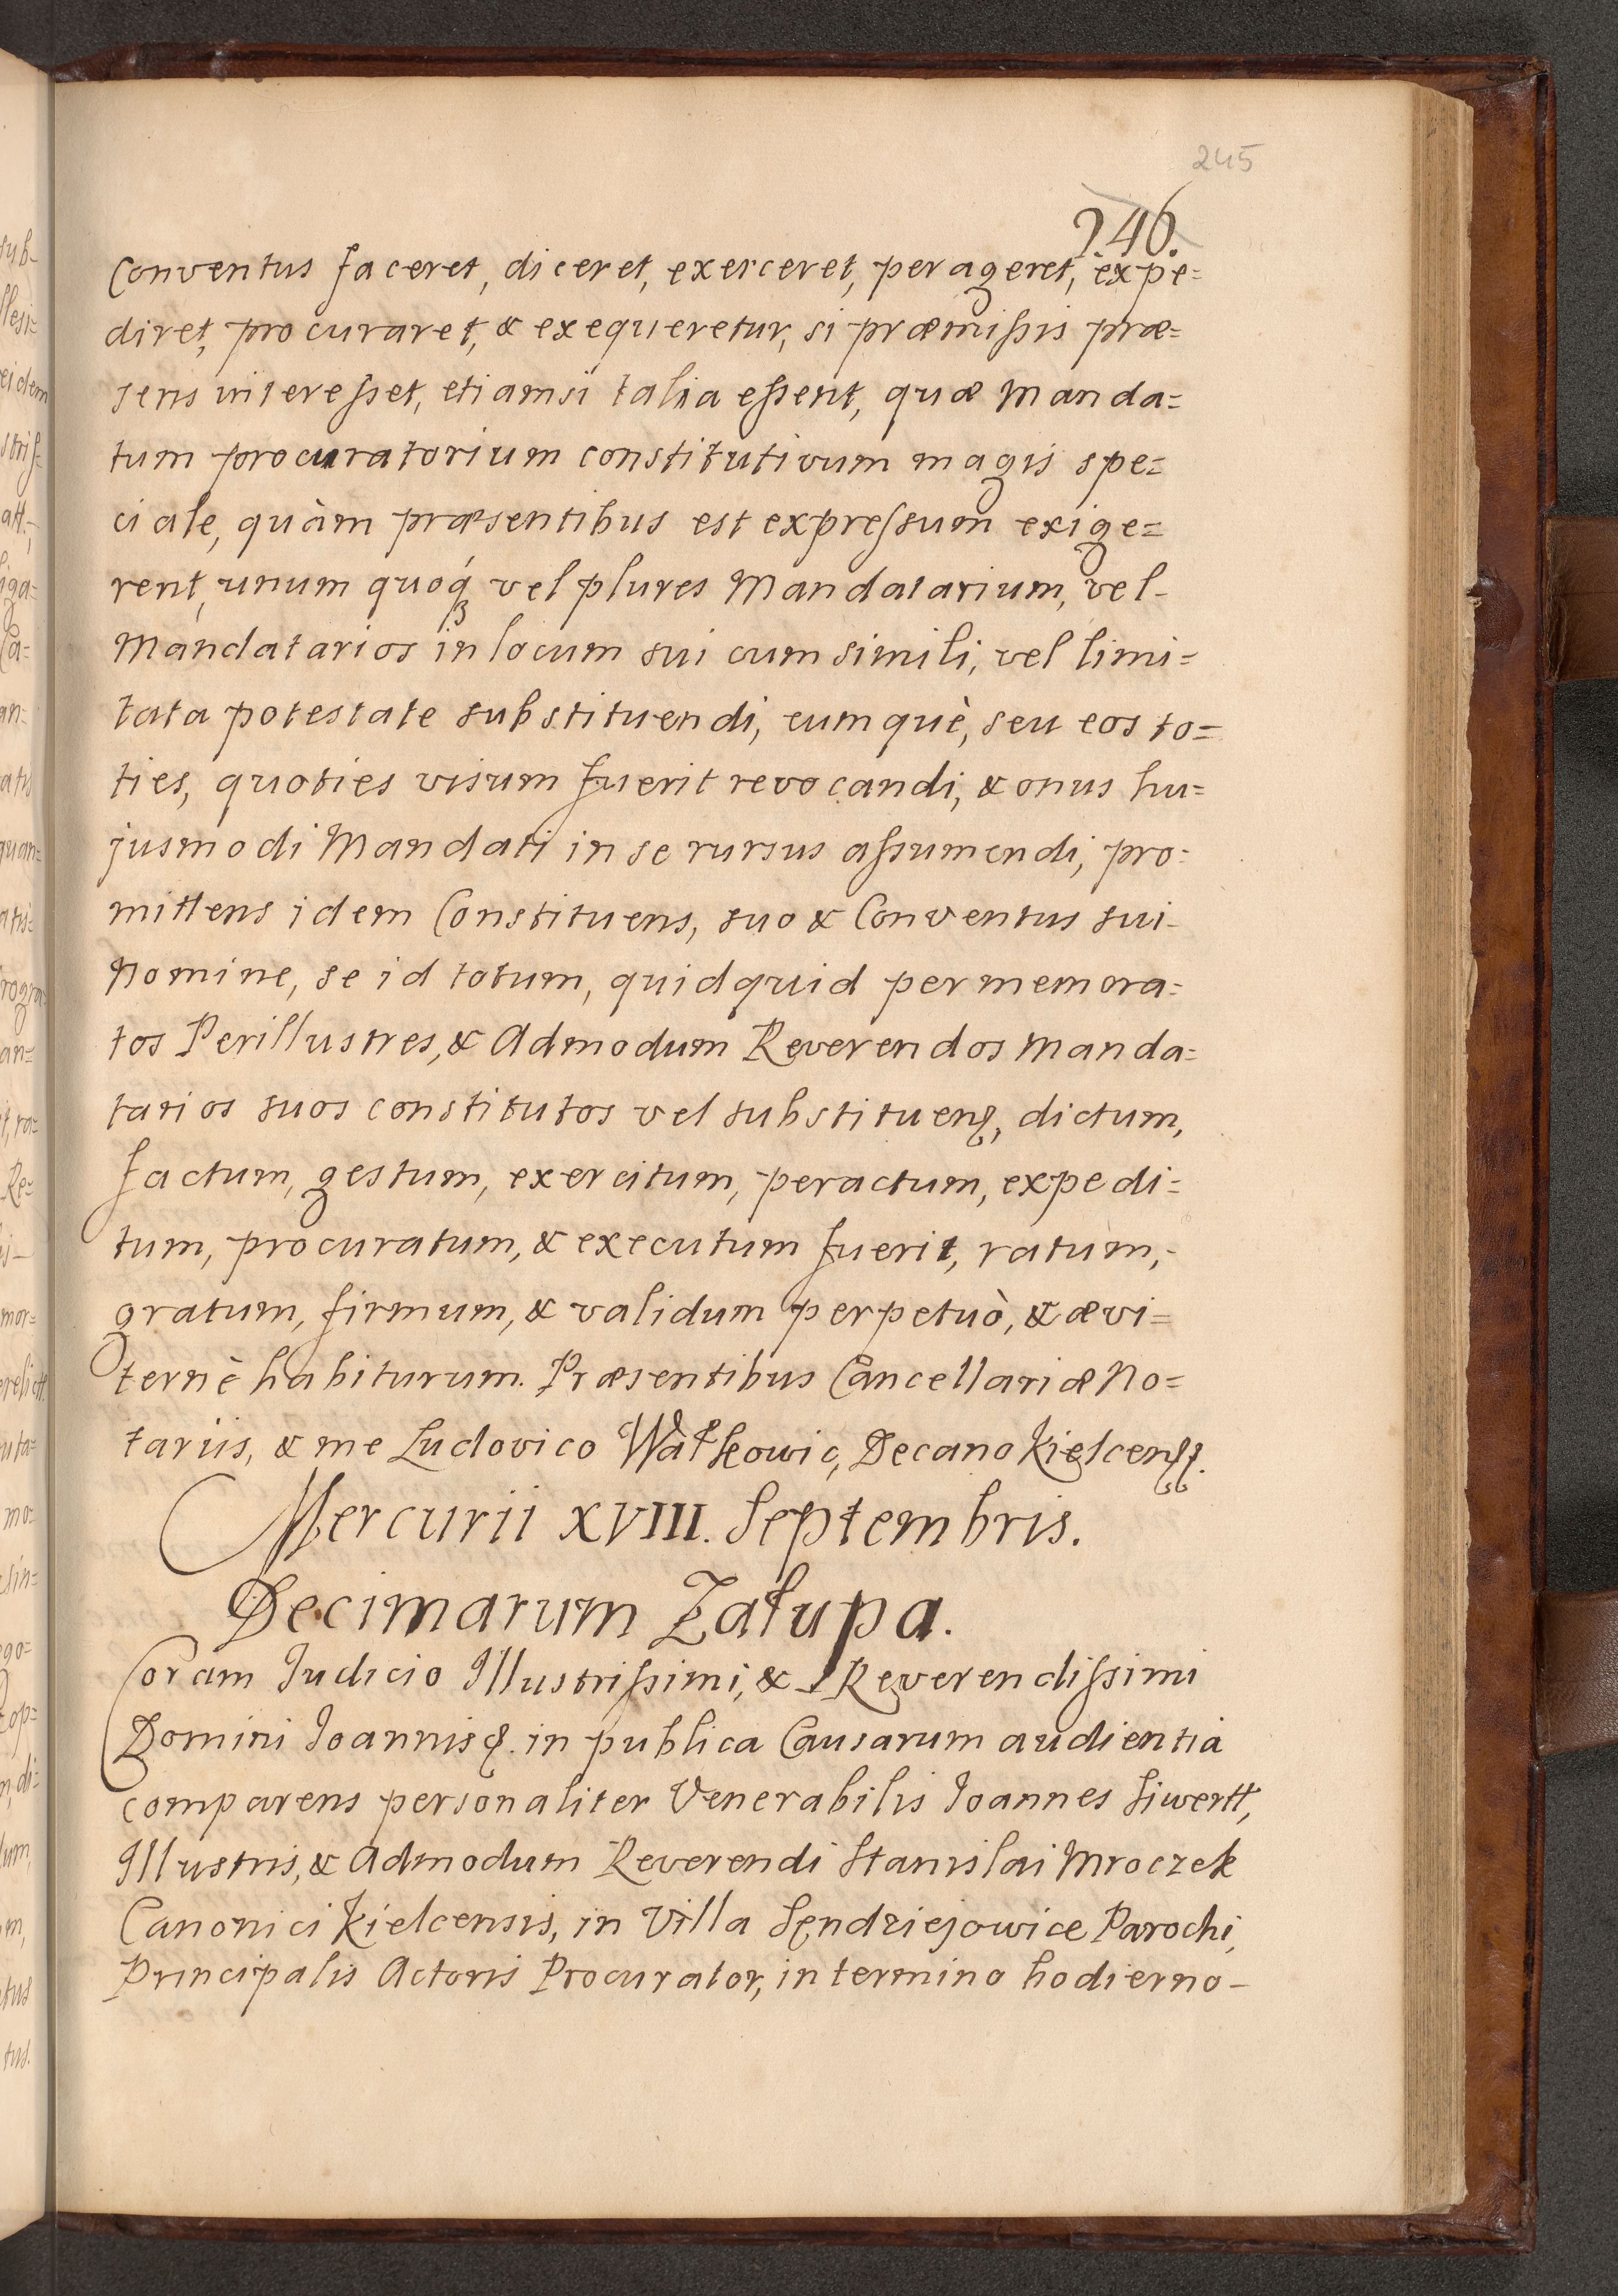 245
246.
Conventus faceret, diceret, exerceret, perageret, expe=
diret, procuraret, & exequeretur, si præmißis præ=
sens intereßet, etiamsi talia eßent, quæ Manda=
tum procuratorium constitutivum magis spe=
ciale, quàm præsentibus est expreſsum exige=
rent, unum quoq́ꝫ vel plures Mandatarium, vel-
Mandatarios in locum sui cum simili, vel limi=
tata potestate substituendi, eumquè, seu eos to=
ties, quoties visum fuerit revocandi, & onus hu=
jusmodi Mandati in se rursus aßumendi, pro=
mittens idem Constituens, suo & Conventus sui-
Nomine, se id totum, quidquid per memora=
tos Perillustres, & Admodum Reverendos Manda=
tarios suos constitutos vel substituenꝭ, dictum,
factum, gestum, exercitum, peractum, expedi=
tum, procuratum, & executum fuerit, ratum,-
gratum, firmum, & validum perpetuò, & ævi=
ternè habiturum. Præsentibus Cancellariæ No=
tariis, & me Ludovico Wałkowic, Decano Kielcenſꝭ.
Mercurii XVIII. Septembris.
Decimarum Załupa.
Coram Judicio Illustrißimi, & Reverendißimi
Domini Joannis &. in publica Causarum audientia
comparens personaliter Venerabilis Joannes Siwertt,
Illustris, & Admodum Reverendi Stanislai Mroczek
Canonici Kielcensis, in Villa Sędziejowice Parochi,
Principalis Actoris Procurator, in termino hodierno-